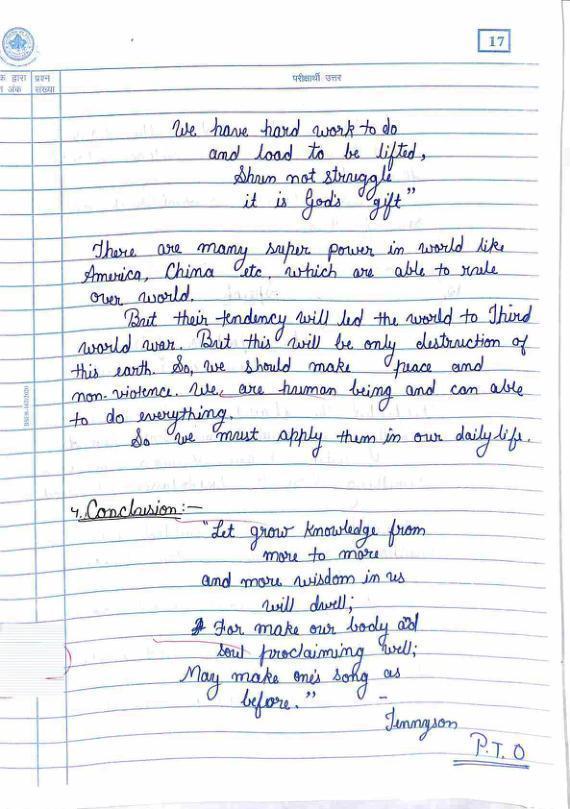 17
क द्वारा प्रश्न
अंक संख्या
परीक्षार्थी उत्तर
We have hard work to do
and load to be lifted,
Shun not struggle
it is God's gift"
There are many super power in world like
America, China etc, which are able to rule
over world.
But their tendency will led the world to Third
world war. But this will be only destruction of
this earth. So, we should make peace and
non-violence. We, are human being and can able
to do everything.
So we must apply them in our daily life.
4. Conclusion:-
"Let grow knowledge from
more to more
and more wisdom in us
will dwell;
For make our body and
soul proclaiming well;
May make one's song as
before." -
Tennyson
P.T.O